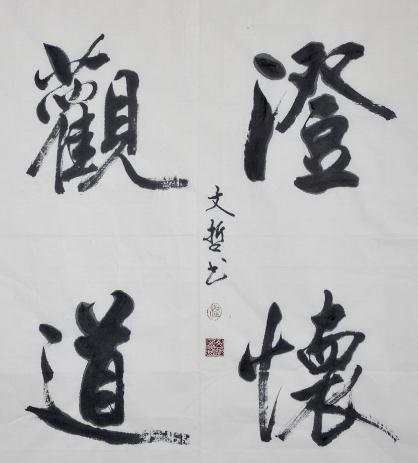 澄懷
觀道
文哲书